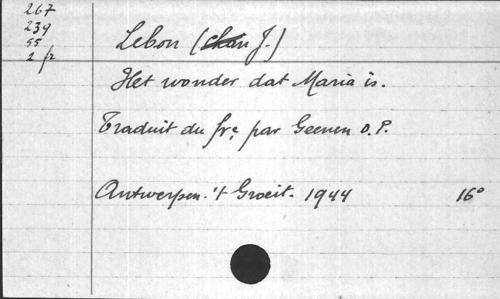 267
239
55
2 fr
Lebon (chan J.)
Het wonder dat Maria is.
Traduit du frç par Geenen O.P.
Antwerpen. 't Groeit. 1944 16°